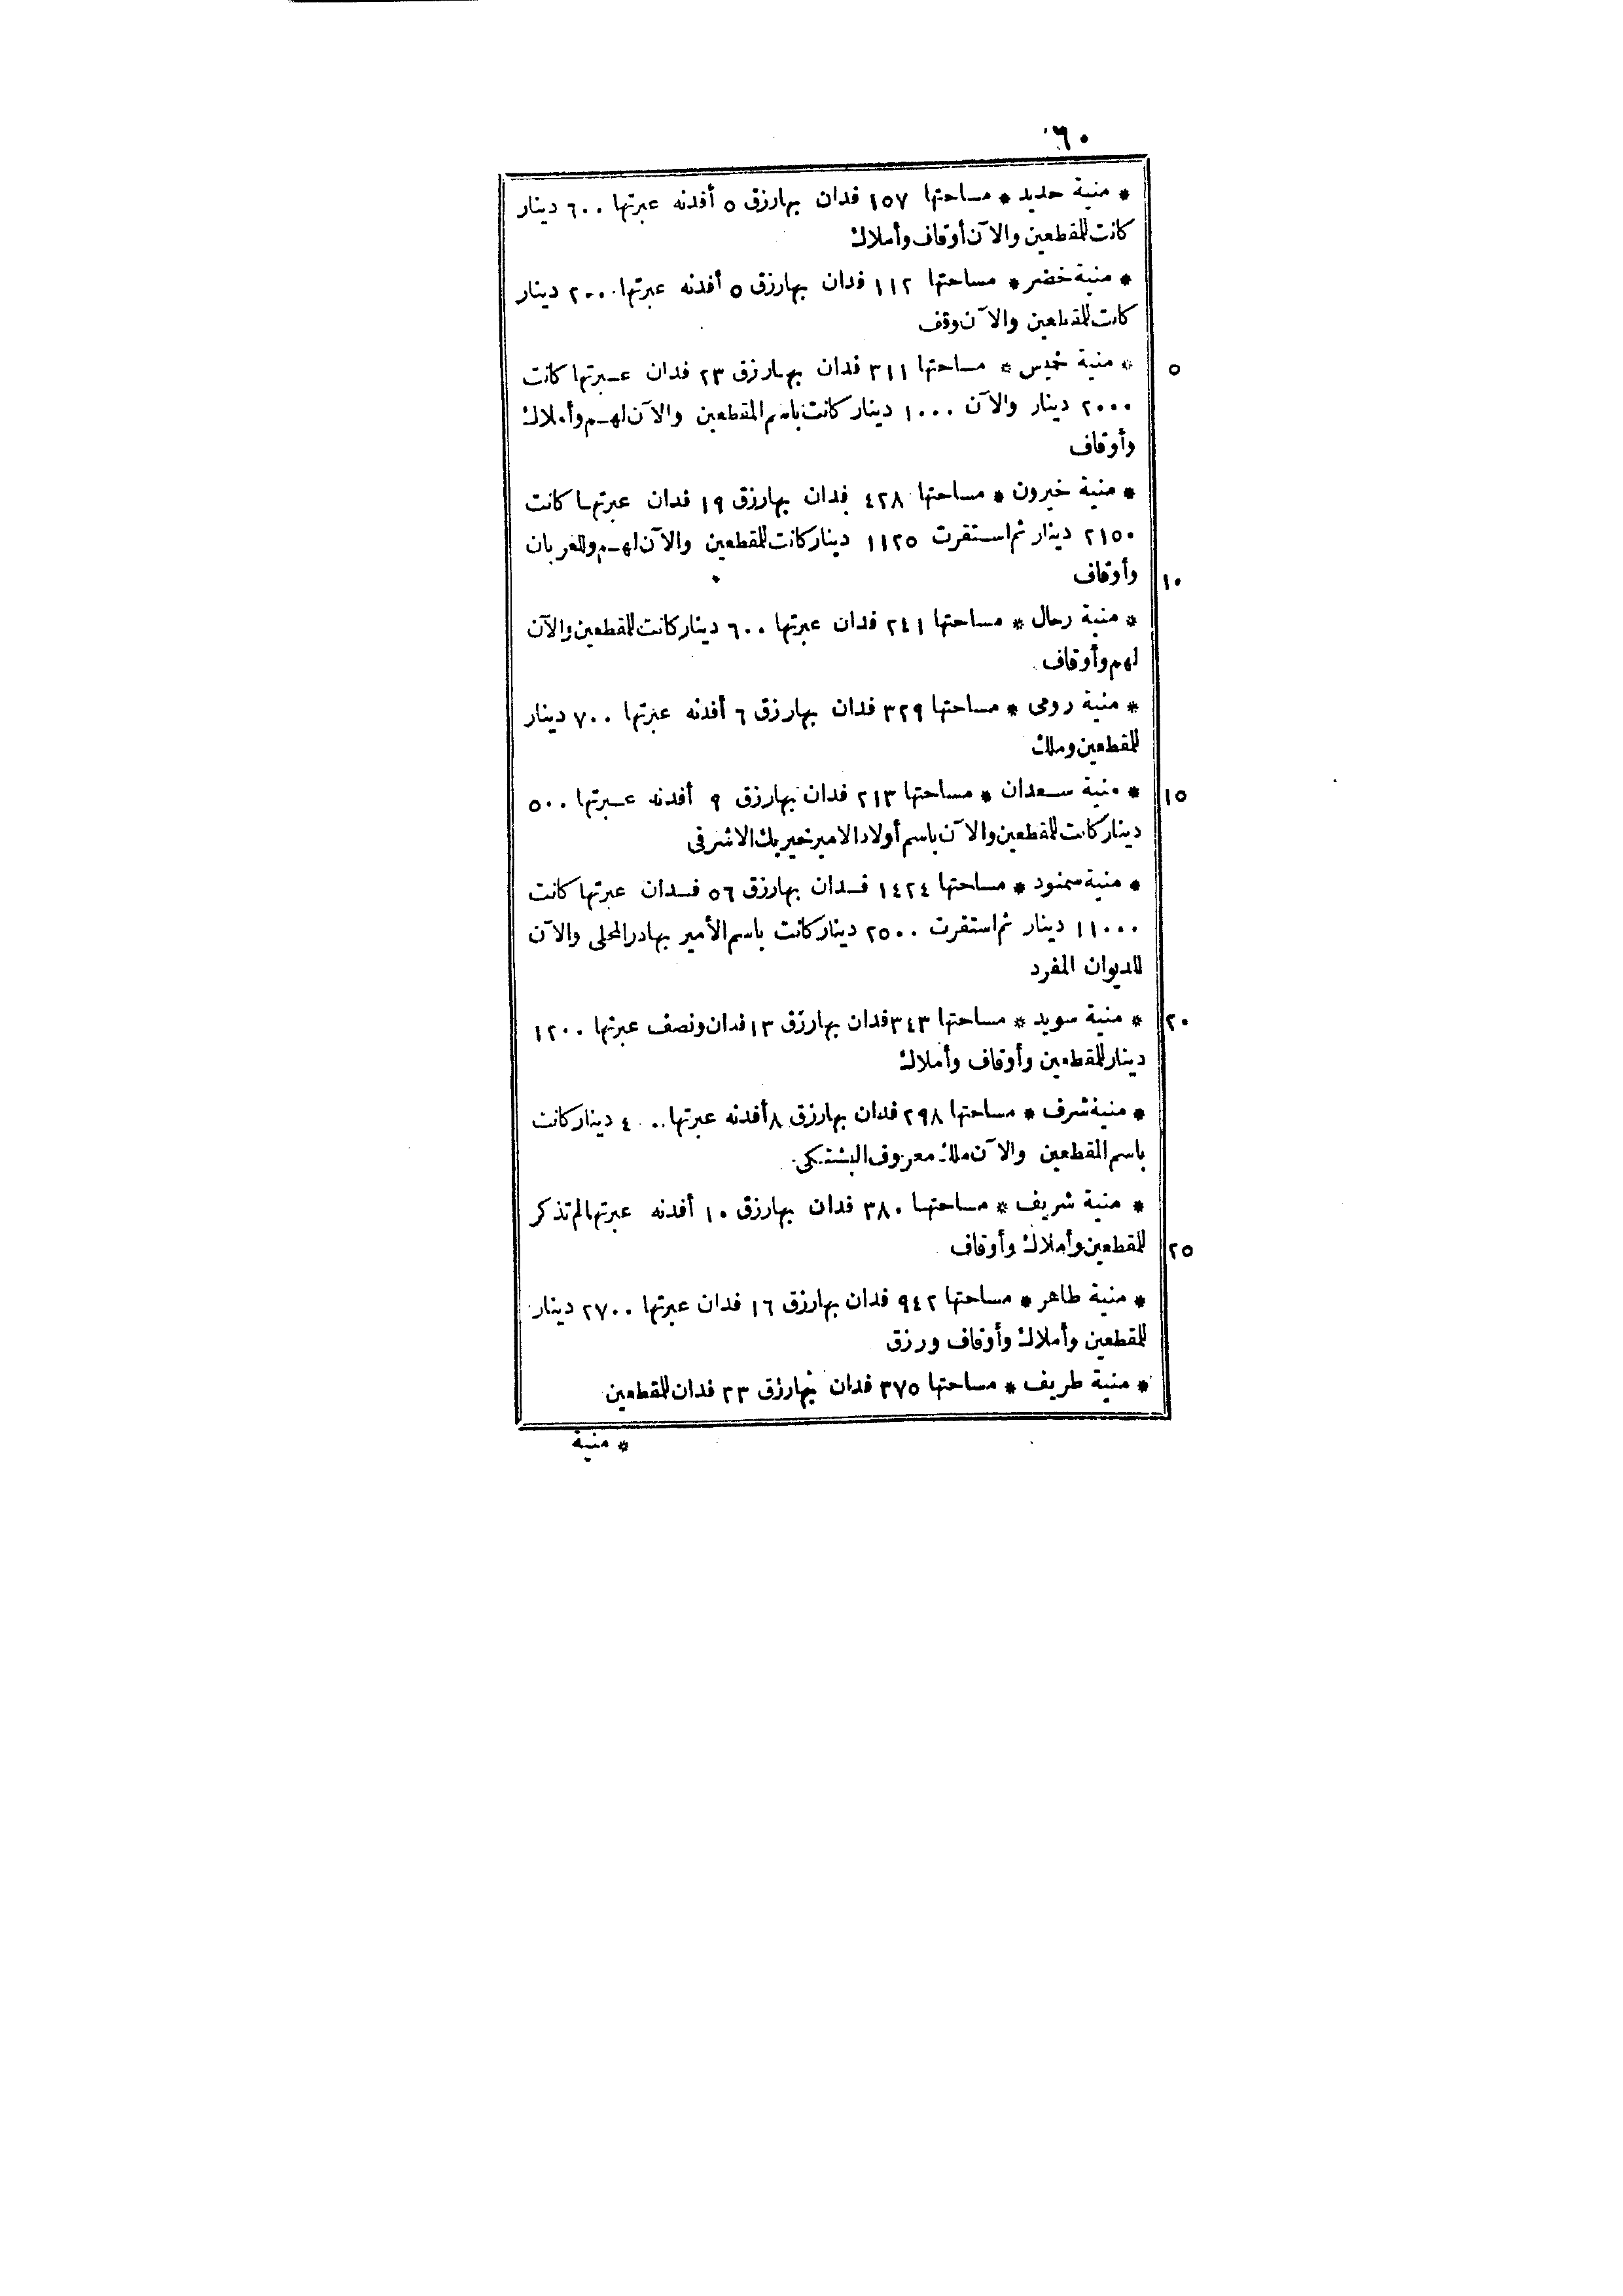 ٦٠
* منية حديد * مساحتها ١٥٧ فدان بها رزق ٥ أفدنه عبرتها ٦٠٠ دينار
كانت للمقطعين والآن أوقاف وأملاك
* منية خضر * مساحتها ١١٢ فدان بها رزق ٥ أفدنه عبرتها ٢٠٠ دينار
كانت للمقطعين والآن وقف
* منية خميس * مساحتها ٣١١ فدان بها رزق ٢٣ فدان عبرتها كانت ٥
٢٠٠٠ دينار والآن ١٠٠٠ دينار كانت باسم المقطعين والآن لهم وأملاك
وأوقاف
* منية خيرون * مساحتها ٤٢٨ فدان بها رزق ١٩ فدان عبرتها كانت
٢١٥٠ دينار ثم استقرت ١١٢٥ دينار كانت للمقطعين والآن لهم وللعربان
وأوقاف ١٠
* منية رحال * مساحتها ٢٤١ فدان عبرتها ٦٠٠ دينار كانت للمقطعين والآن
لهم وأوقاف
* منية رومى * مساحتها ٣٢٩ فدان بها رزق ٦ أفدنه عبرتها ٧٠٠ دينار
للمقطعين وملك
* منية سعدان * مساحتها ٢١٣ فدان بها رزق ٩ أفدنه عبرتها ٥٠٠ ١٥
دينار كانت للمقطعين والآن باسم أولاد الامير خير بك الاشرفى
* منية سمنود * مساحتها ١٤٢٤ فدان بها رزق ٥٦ فدان عبرتها كانت
١١٠٠٠ دينار ثم استقرت ٢٥٠٠ دينار كانت باسم الأمير بهادر المحلى والآن
للديوان المفرد
* منية سويد * مساحتها ٣٤٣ فدان بها رزق ١٣ فدان ونصف عبرتها ١٢٠٠ ٢٠
دينار للمقطعين وأوقاف وأملاك
* منية شرف * مساحتها ٢٩٨ فدان بها رزق ٨ أفدنه عبرتها ٤٠٠ دينار كانت
باسم المقطعين والآن ملك معروف البشتكى
* منية شريف * مساحتها ٣٨٠ فدان بها رزق ١٠ أفدنه عبرتها لم تذكر
للمقطعين وأملاك وأوقاف ٢٥
* منية طاهر * مساحتها ٩٤٢ فدان بها رزق ١٦ فدان عبرتها ٢٧٠٠ دينار
للمقطعين وأملاك وأوقاف ورزق
* منية طريف * مساحتها ٣٧٥ فدان بها رزق ٢٣ فدان للمقطعين
* منية